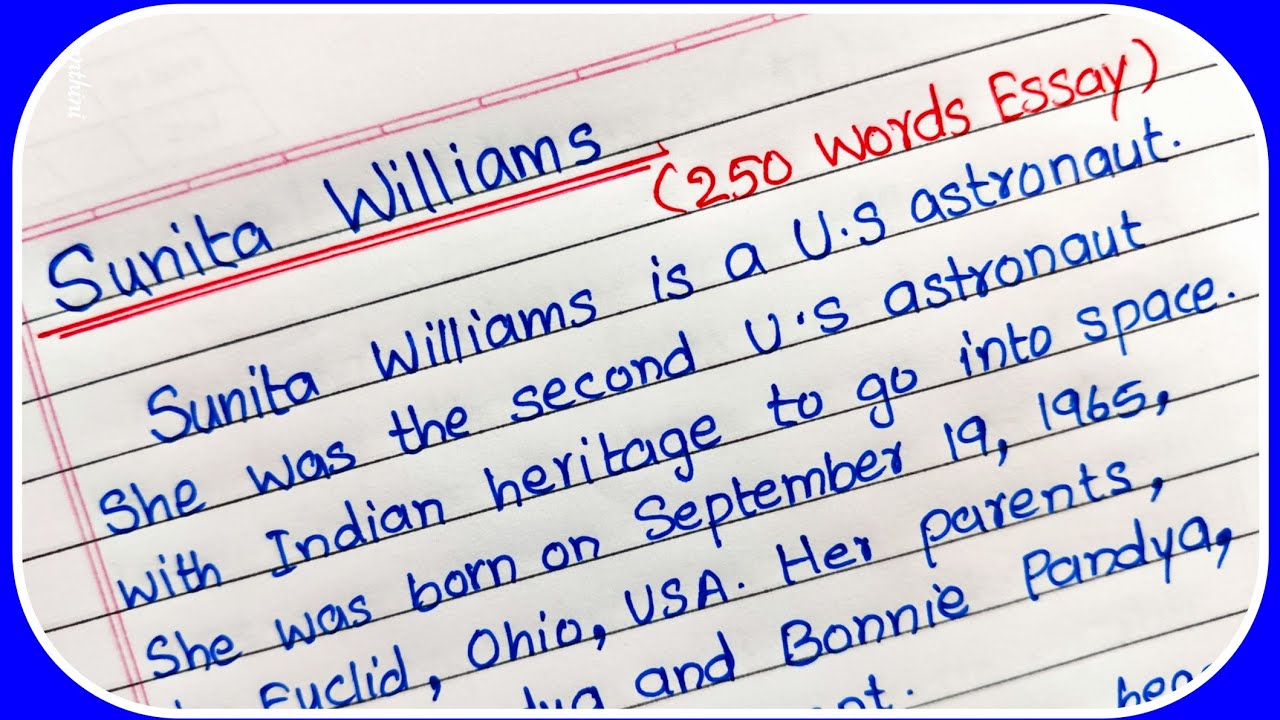 Sunita Williams
(250 Words Essay)
Sunita Williams is a U.S astronaut.
She was the second U.S astronaut
with Indian heritage to go into space.
She was born on September 19, 1965,
Euclid, Ohio, USA. Her parents,
and Bonnie Pandya,